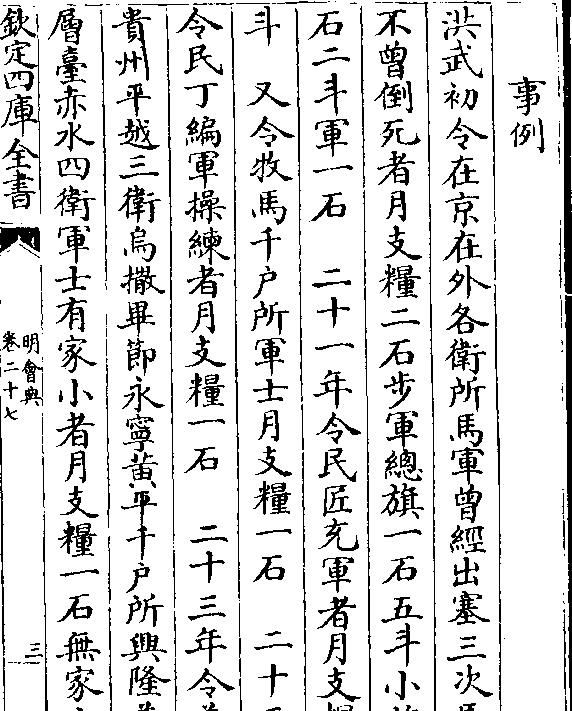 事例
洪武初令在京在外各衛所馬軍曾經出塞三次馬
不曾倒死者月支糧二石步軍總旗一石五斗小旗
石二斗軍一石　二十一年令民匠充軍者月支糧
斗　又令牧馬千户所軍士月支糧一石　二十
令民丁編軍操練者月支糧一石　二十三年令
貴州平越三衛烏撒畢節永寧黄平千户所興隆
層臺赤水四衛軍士有家小者月支糧一石無家
欽定四庫全書
明會典
卷二十七
三